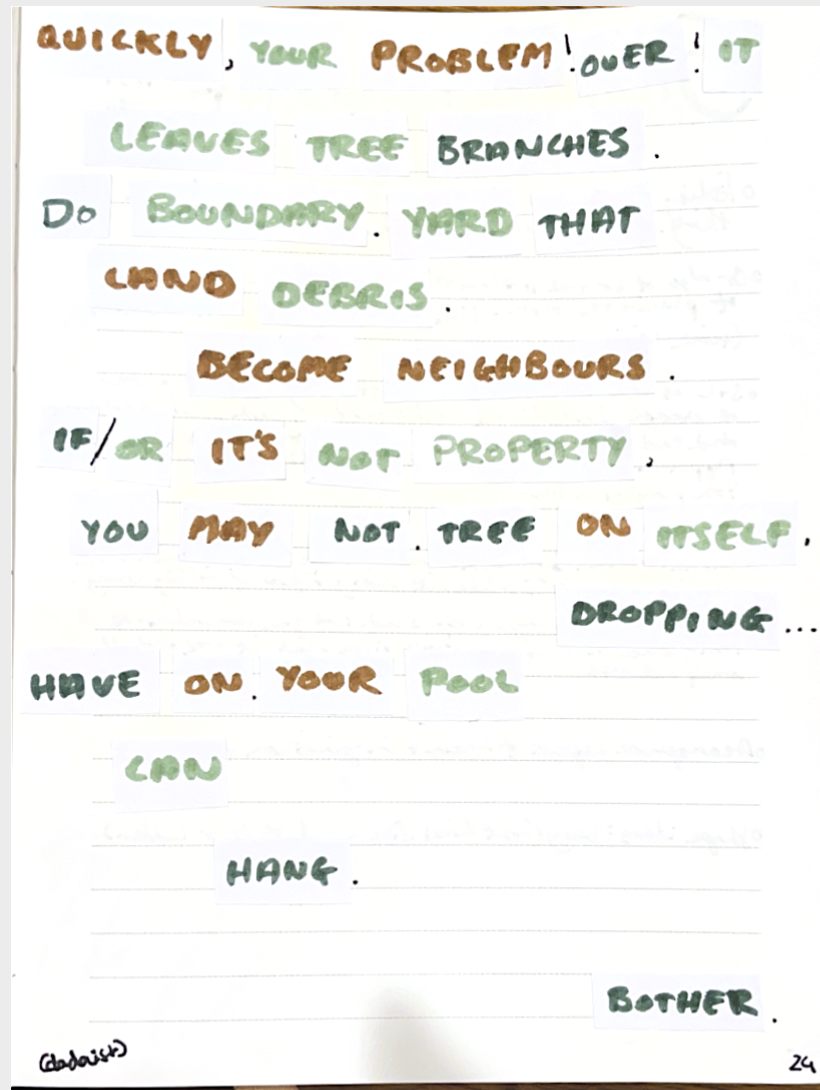 QUICKLY, YOUR PROBLEM! OVER! IT
LEAVES TREE BRANCHES.
DO BOUNDARY. YARD THAT
LAND DEBRIS.
BECOME NEIGHBOURS.
IF/OR IT'S NOT PROPERTY,
YOU MAY NOT. TREE ON ITSELF,
DROPPING...
HAVE ON. YOUR POOL
CAN
HANG.
BOTHER.
(dadaist)
24